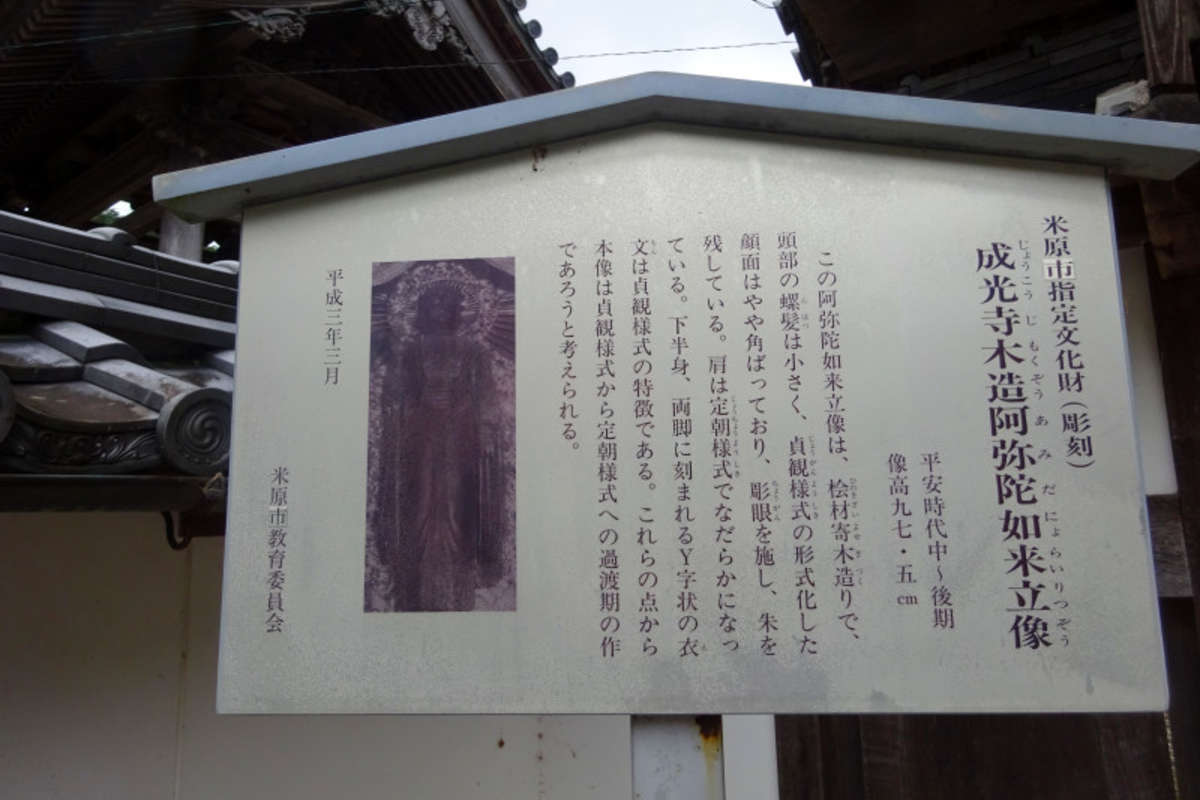 米原市指定文化財（彫刻）
成光寺木造阿弥陀如来立像
じょうこうじもくぞうあみだにょらいりつぞう
平安時代中～後期
像高九七・五㎝
この阿弥陀如来立像は、桧材寄木造りで、
頭部の螺髪は小さく、貞観様式の形式化した
顔面はやや角ばっており、彫眼を施し、朱を
残している。肩は定朝様式でなだらかになっ
ている。下半身、両脚に刻まれるY字状の衣
文は貞観様式の特徴である。これらの点から
本像は貞観様式から定朝様式への過渡期の作
であろうと考えられる。
平成三年三月
米原市教育委員会